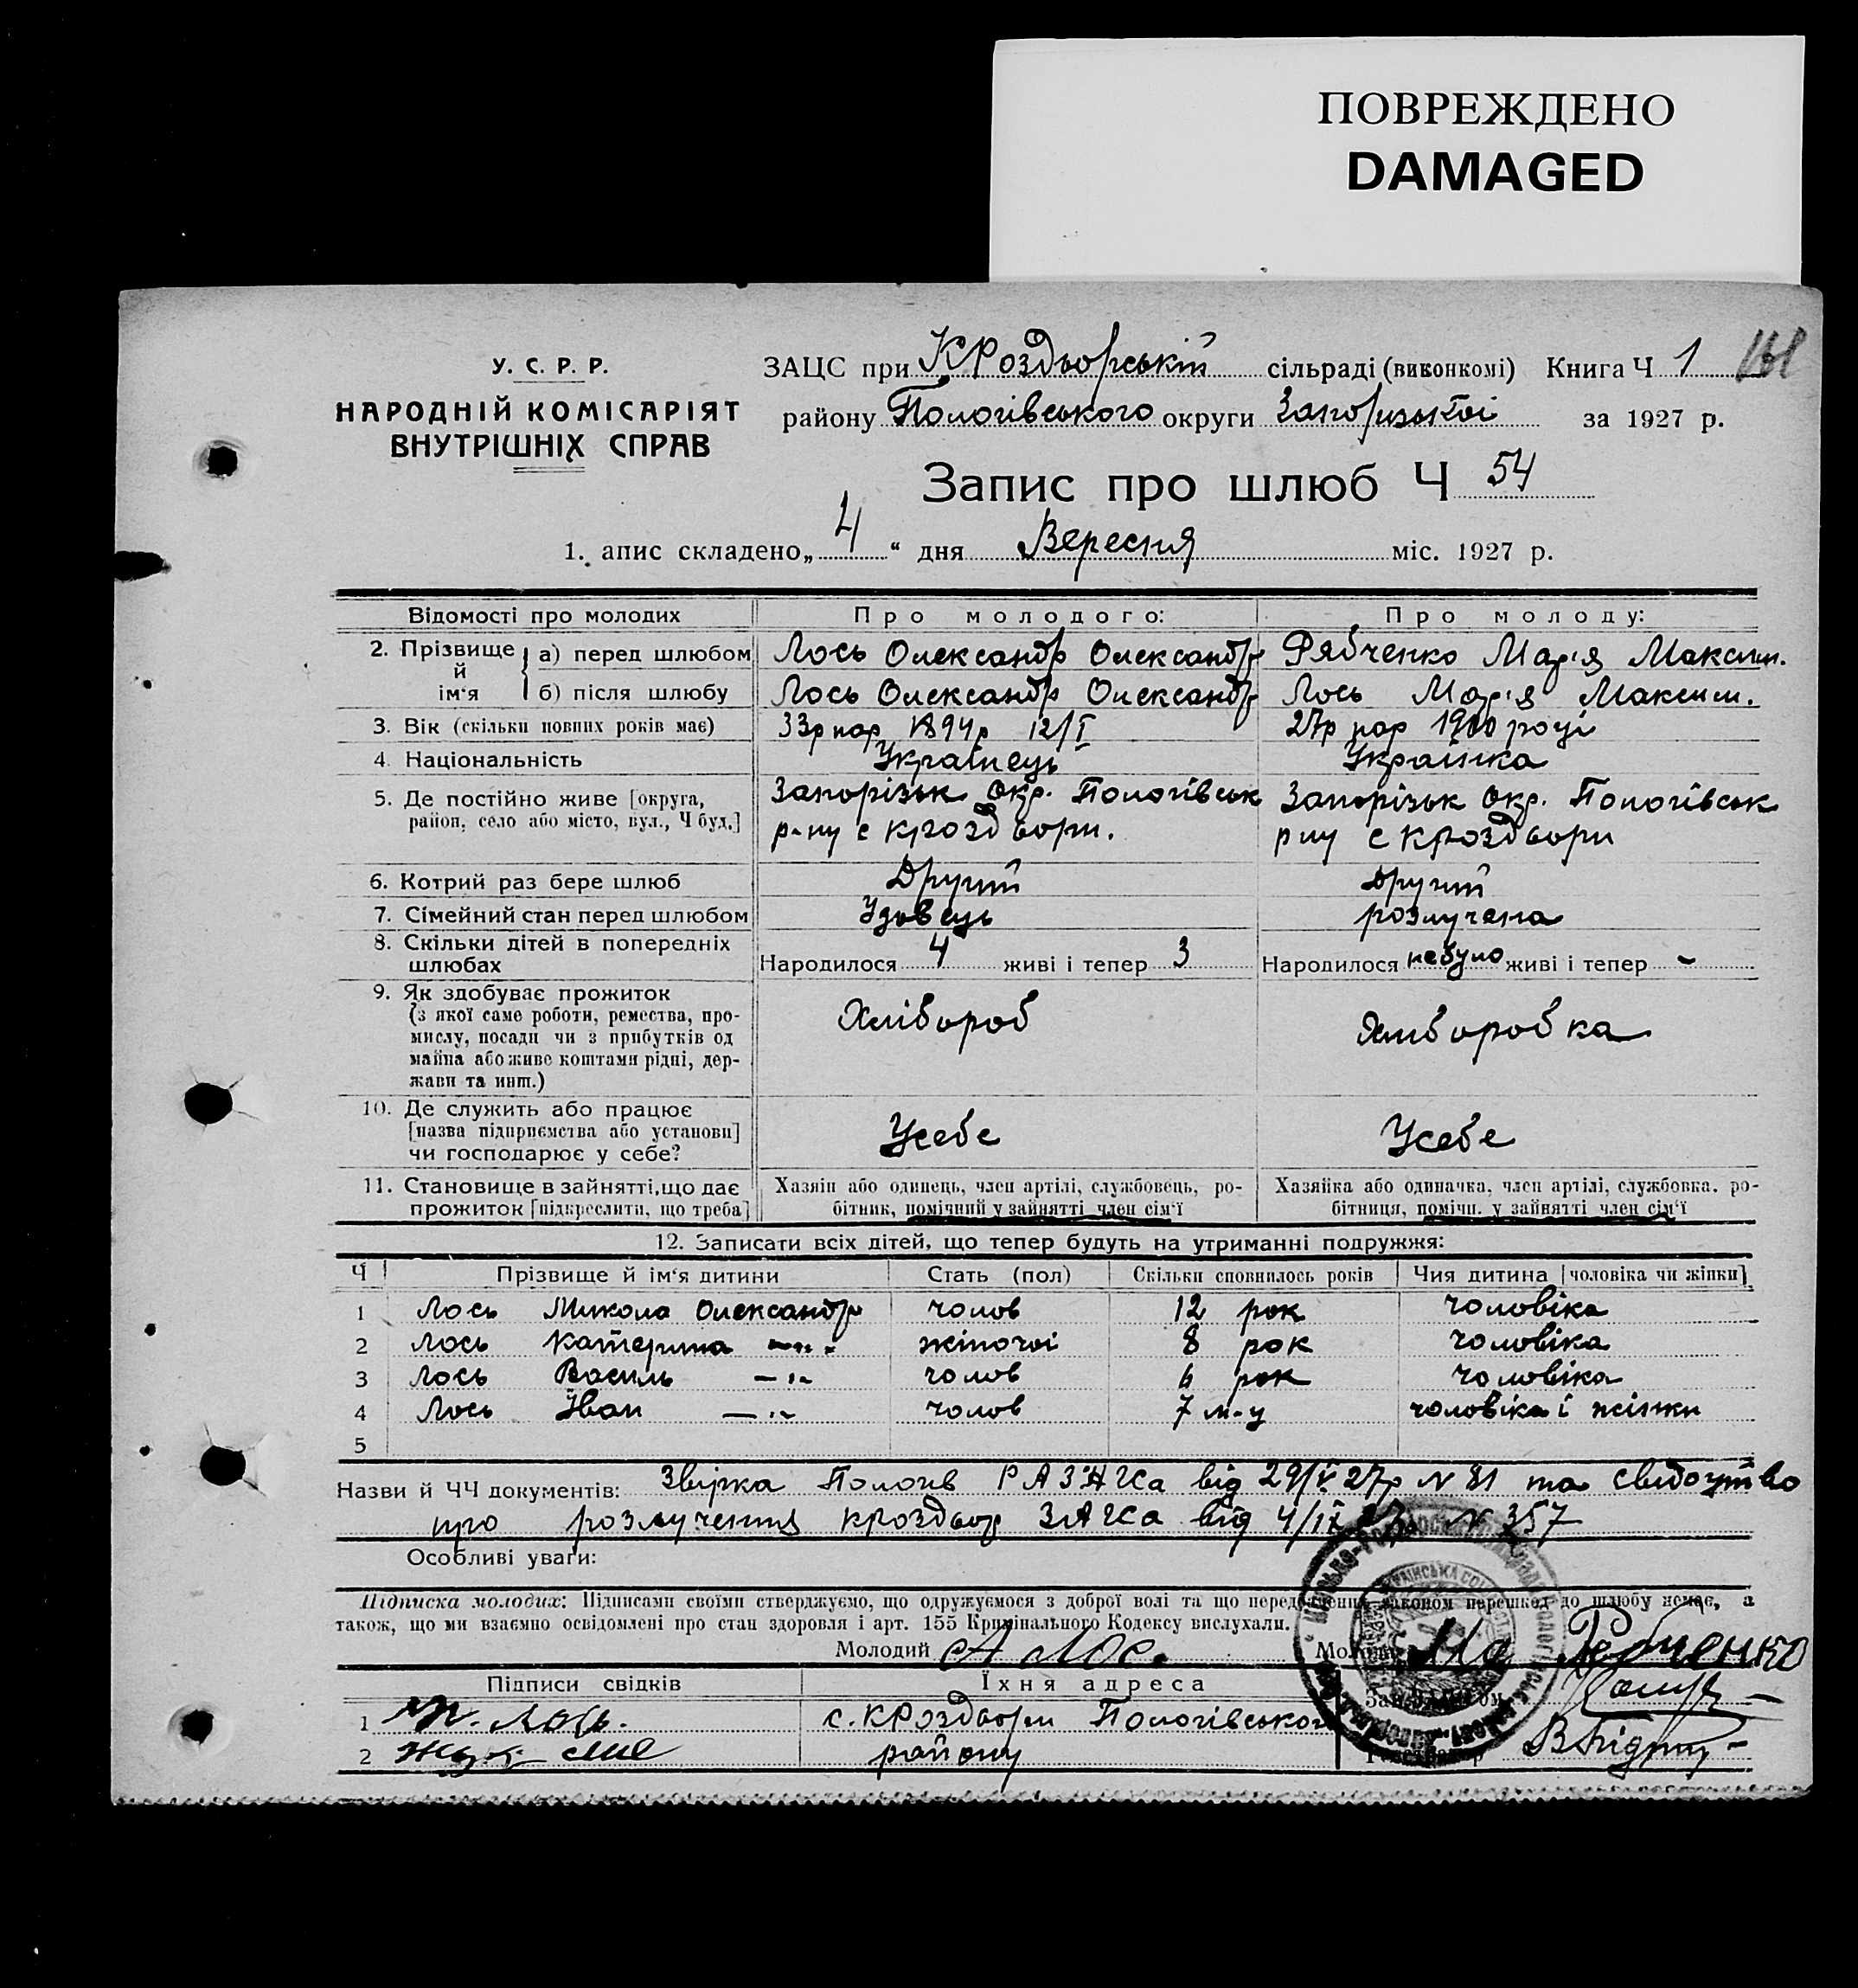 ПОВРЕЖДЕНО
DAMAGED
У. С. Р. Р.
НАРОДНІЙ КОМІСАРІЯТ
ВНУТРІШНІХ СПРАВ
ЗАЦС при КРоздьорській сільраді (виконкомі) Книга Ч 1
району Пологівського округи Запорізькоі за 1927 р.
Запис про шлюб Ч 54
1. апис складено „ 4 “ дня Вересня міс. 1927 р.
Відомості про молодих Про молодого: Про молоду:
2. Прізвище й ім‘я а) перед шлюбом Лось Олександр Олександр Рябченко Марія Максим.
б) після шлюбу Лось Олександр Олександр Лось Марія Максим.
3. Вік (скільки повних років має) 33р нар 1894р 12/I 27р нар 1900 році
4. Національність Українець Українка
5. Де постійно живе [округа, район, село або місто, вул., Ч буд.] Запорізьк окр. Пологівськ Запорізьк окр. Пологівськ
р-ну с Кроздвори. р ну с Кроздвори
6. Котрий раз бере шлюб Другий Другий
7. Сімейний стан перед шлюбом Удовець розлучена
8. Скільки дітей в попередніх шлюбах Народилося 4 живі і тепер 3 Народилося небуло живі і тепер -
9. Як здобуває прожиток
(з якої саме роботи, ремества, про-
мислу, посади чи з прибутків од
майна або живе коштами рідні, дер-
жави та инш.)
Хлібороб Хліборобка
10. Де служить або працює
[назва підприємства або установи]
чи господарює у себе?
Усебе Усебе
11. Становище в зайнятті, що дає
прожиток [підкреслити, що треба]
Хазяїн або одинець, член артілі, службовець, ро-
бітник, помічний у зайнятті член сім‘ї
Хазяйка або одиначка, член артілі, службовка, ро-
бітниця, помічн. у зайнятті член сім‘ї
12. Записати всіх дітей, що тепер будуть на утриманні подружжя:
Ч Прізвище й ім‘я дитини Стать (пол) Скільки сповнилось років Чия дитина [чоловіка чи жінки]
1 Лось Микола Олександр чолов 12 рок чоловіка
2 Лось Катерина -„- жіночоі 8 рок чоловіка
3 Лось Василь -„- чолов 6 рок чоловіка
4 Лось Іван -„- чолов 7 м-ц чоловіка і жінки
5
Назви й ЧЧ документів: Звірка Пологів РАЗАГСа від 27р N 81 та свидоцтво
про розлучення Кроздвор ЗАГСа від 4/IX 27 N 357
Особливі уваги:
Підписка молодих: Підписами своїми стверджуємо, що одружуємося з доброї волі та що передбачених законом перешкод до шлюбу немає, а
також, що ми взаємно освідомлені про стан здоровля і арт. 155 Кримінального Кодексу вислухали.
Молодий А Лос. Молода
Підписи свідків Їхня адреса
1 Лось. с. КРоздори Пологівського
2 району